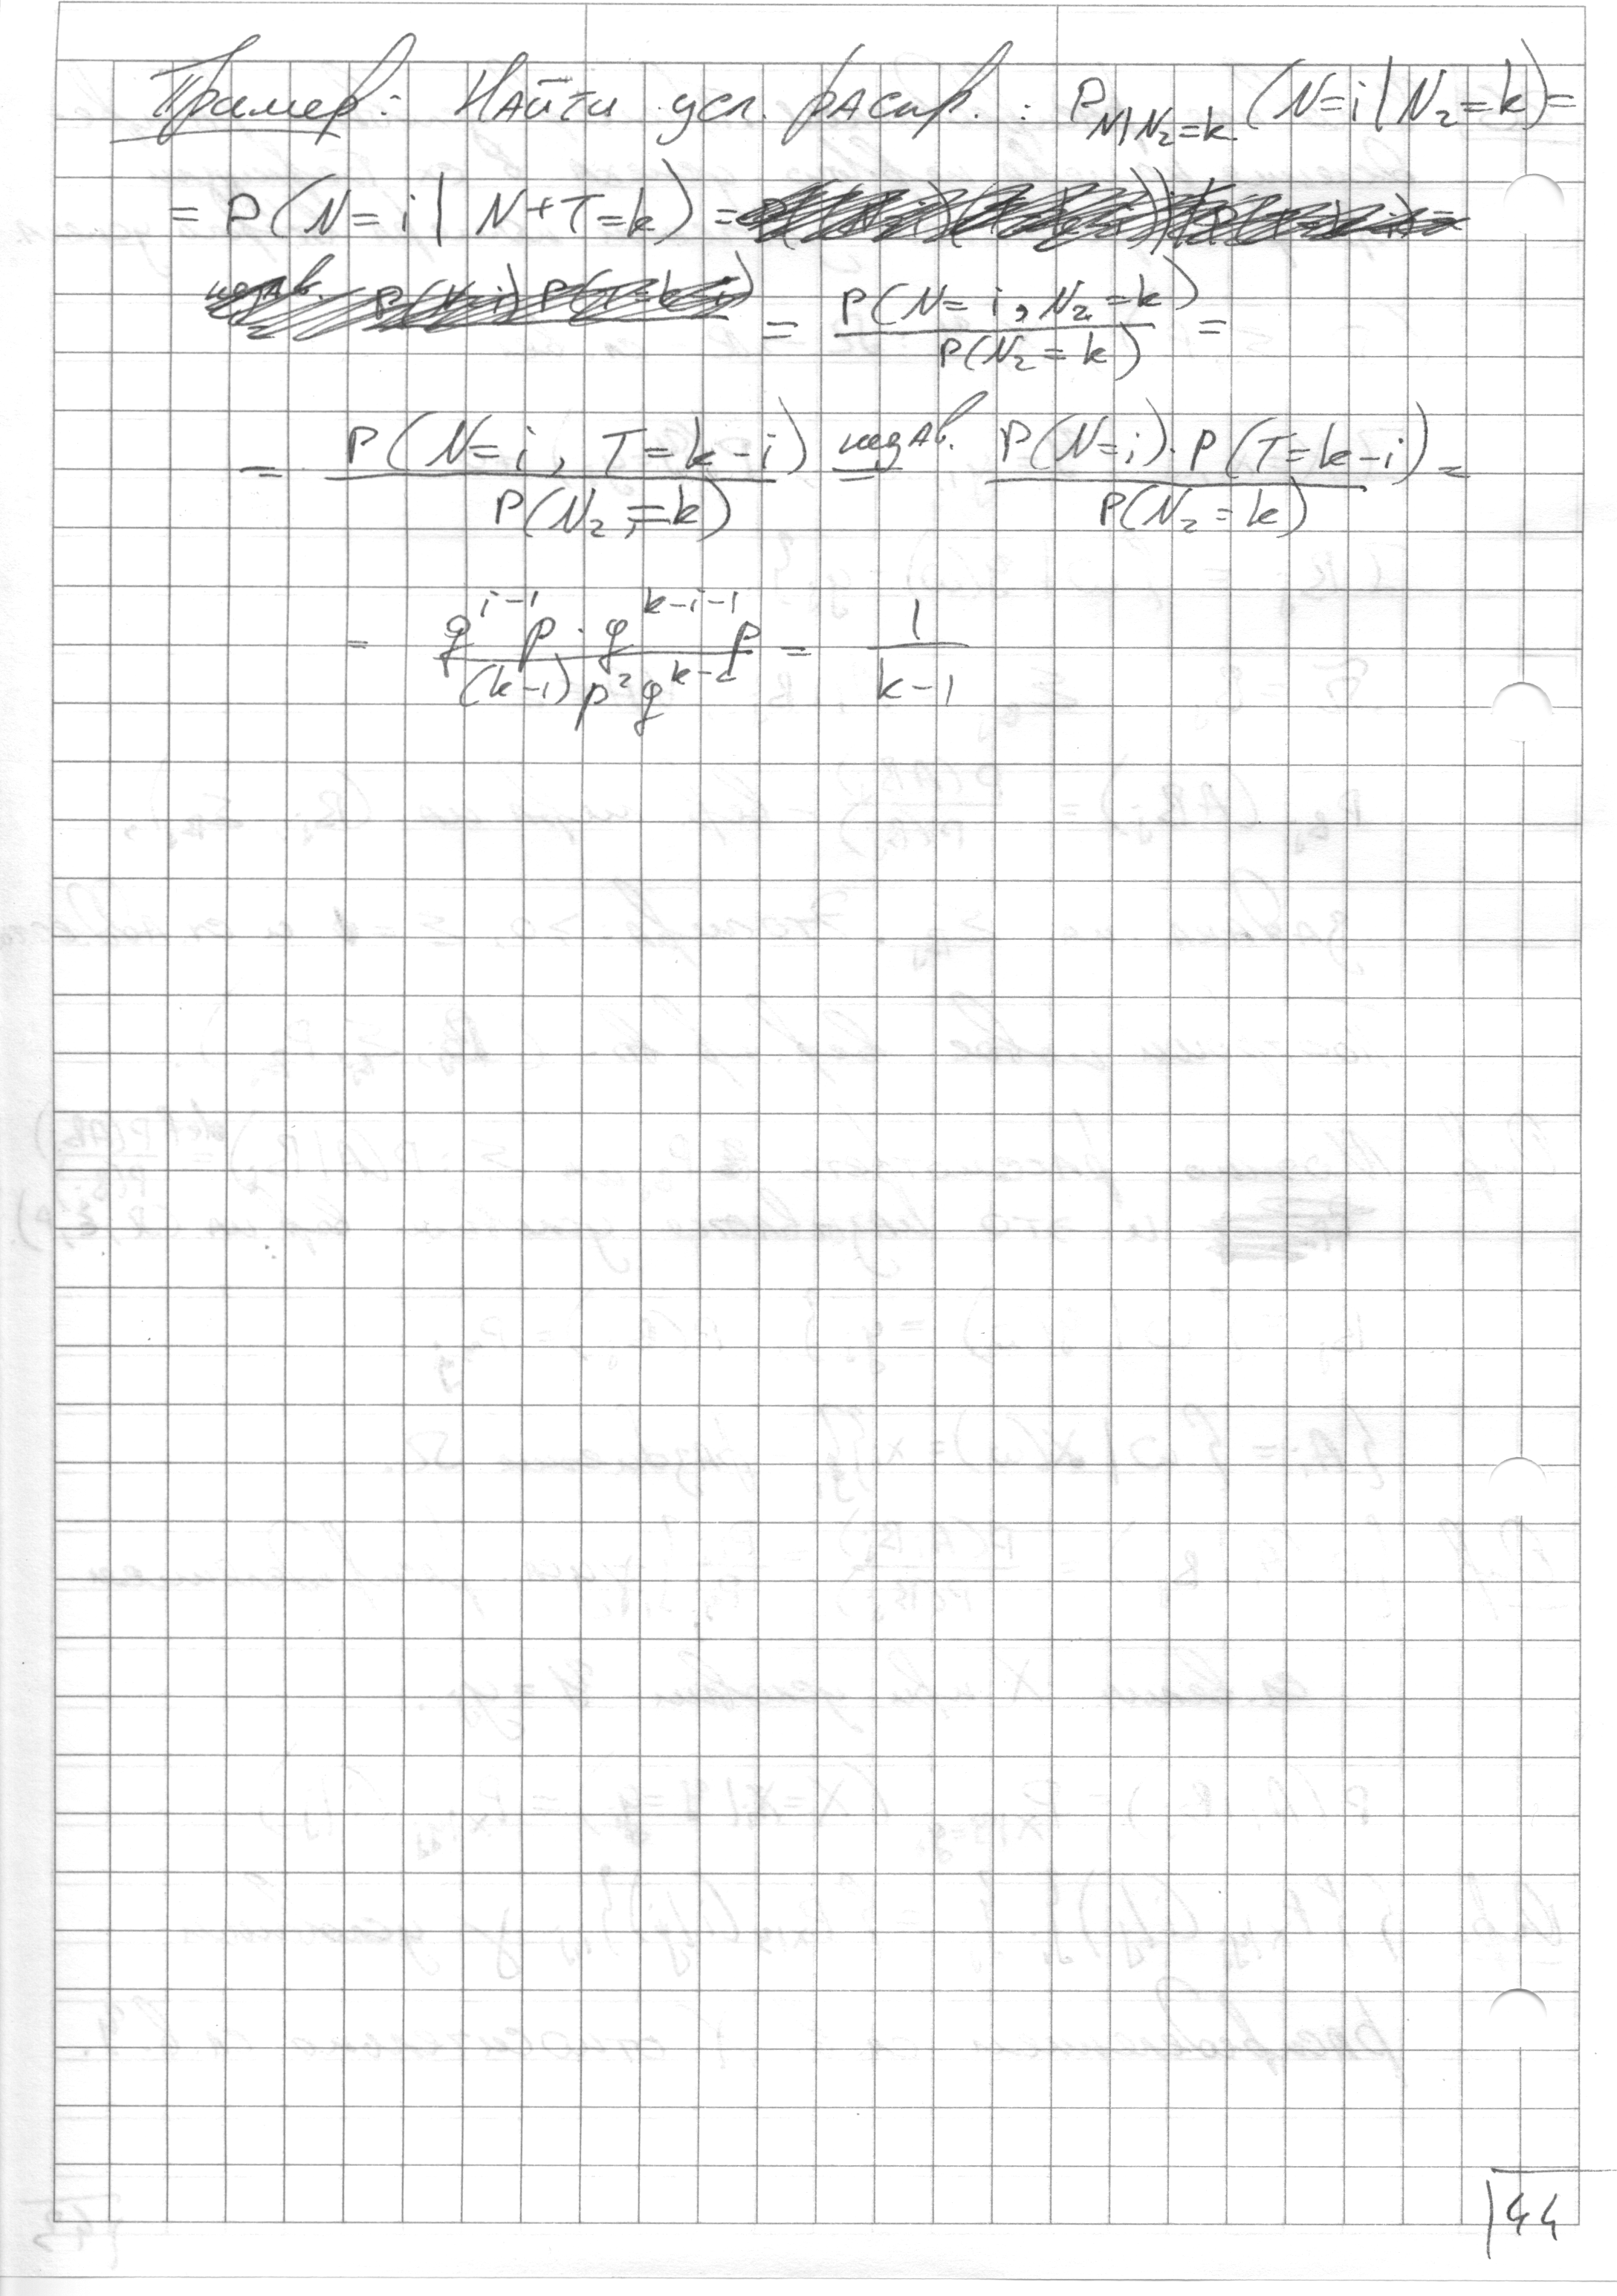 Пример: Найти усл. распр. : P_{N|N₂=k} (N=i | N₂=k) =
= P(N=i | N+T=k) =
= P(N=i, N₂=k) / P(N₂=k) =
= P(N=i, T=k-i) / P(N₂=k) незав. = P(N=i)·P(T=k-i) / P(N₂=k) =
= q^{i-1} p · q^{k-i-1} p / (k-1) p² q^{k-2} = 1 / (k-1)
44